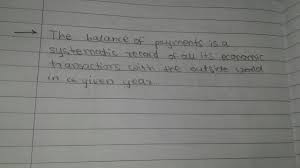 → The balance of payments is a
systematic record of all its economic
transactions with the outside world
in a given year